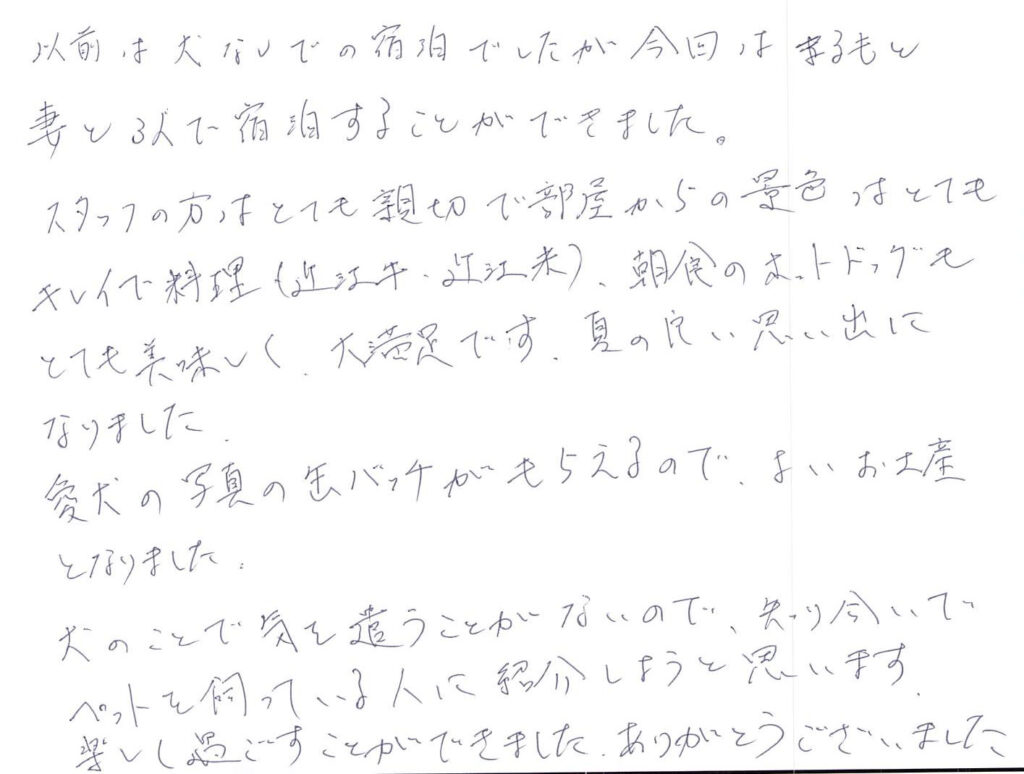 以前は犬なしでの宿泊でしたが今回はまるもと
妻と3人で宿泊することができました。
スタッフの方はとても親切で部屋からの景色はとても
キレイで料理(近江牛・近江米)、朝食のホットドッグも
とても美味しく、大満足です、夏の良い思い出に
なりました、
愛犬の写真の缶バッチがもらえるので、よいお土産
となりました、
犬のことで気を遣うことがないので、知り合いで
ペットを飼っている人に紹介しようと思います、
楽しく過ごすことができました、ありがとうございました